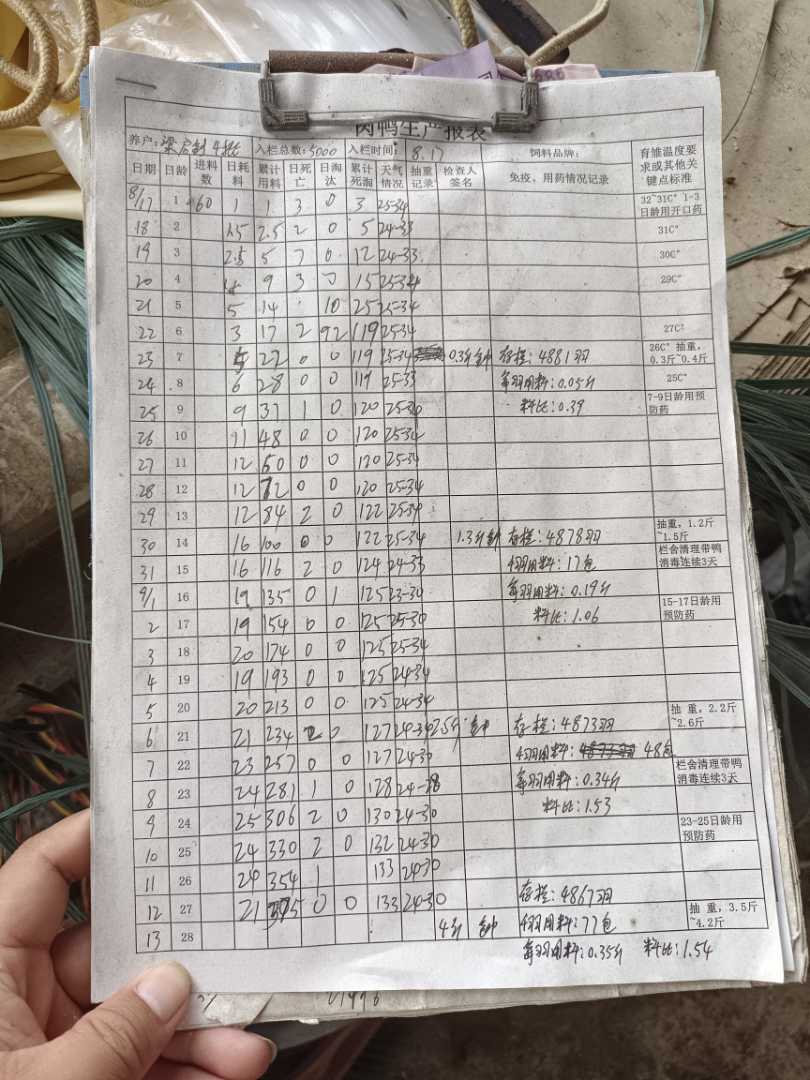 肉鸭生产报表
养户: 4批 入栏总数:5000 入栏时间: 8.17 饲料品牌: 育雏温度要求或其他关键点标准
日期 日龄 进料数 日耗料 累计用料 日死亡 日淘汰 累计死淘 天气情况 抽重记录 检查人签名 免疫、用药情况记录
8/17 1 160 1 1 3 0 3 25-34 32~31C° 1-3日龄用开口药
18 2 1.5 2.5 2 0 5 24-33 31C°
19 3 2.5 5 7 0 12 24-33 30C°
20 4 4 9 3 0 15 25-34 29C°
21 5 5 14 10 25 25-34
22 6 3 17 2 92 119 25-34 27C°
23 7 5 22 0 0 119 25-34 0.3斤 存栏:4881羽 26C° 抽重,0.3斤~0.4斤
24 8 6 28 0 0 119 25-33 每羽用料:0.05斤 25C°
25 9 9 37 1 0 120 25-30 料比:0.39 7-9日龄用预防药
26 10 11 48 0 0 120 25-34
27 11 12 60 0 0 120 25-34
28 12 12 72 0 0 120 25-34
29 13 12 84 2 0 122 25-34
30 14 16 100 0 0 122 25-34 1.3斤 存栏:4878羽 抽重,1.2斤~1.5斤
31 15 16 116 2 0 124 24-33 用料:17包 栏舍清理带鸭消毒连续3天
9/1 16 19 135 0 1 125 23-30 每羽用料:0.19斤
2 17 19 154 0 0 125 25-30 料比:1.06 15-17日龄用预防药
3 18 20 174 0 0 125 25-34
4 19 19 193 0 0 125 24-34
5 20 20 213 0 0 125 24-34
6 21 21 234 2 0 127 24-34 2.5斤 存栏:4873羽 抽 重,2.2斤~2.6斤
7 22 23 257 0 0 127 24-30 用料: 48包
8 23 24 281 1 0 128 24-28 每羽用料:0.34斤 栏舍清理带鸭消毒连续3天
9 24 25 306 2 0 130 24-30 料比:1.53
10 25 24 330 2 0 132 24-30 23-25日龄用预防药
11 26 24 354 1 133 24-30
12 27 21 375 0 0 133 24-30 存栏:4867羽
13 28 4斤 用料:77包 抽 重,3.5斤~4.2斤
每羽用料:0.35斤 料比:1.54